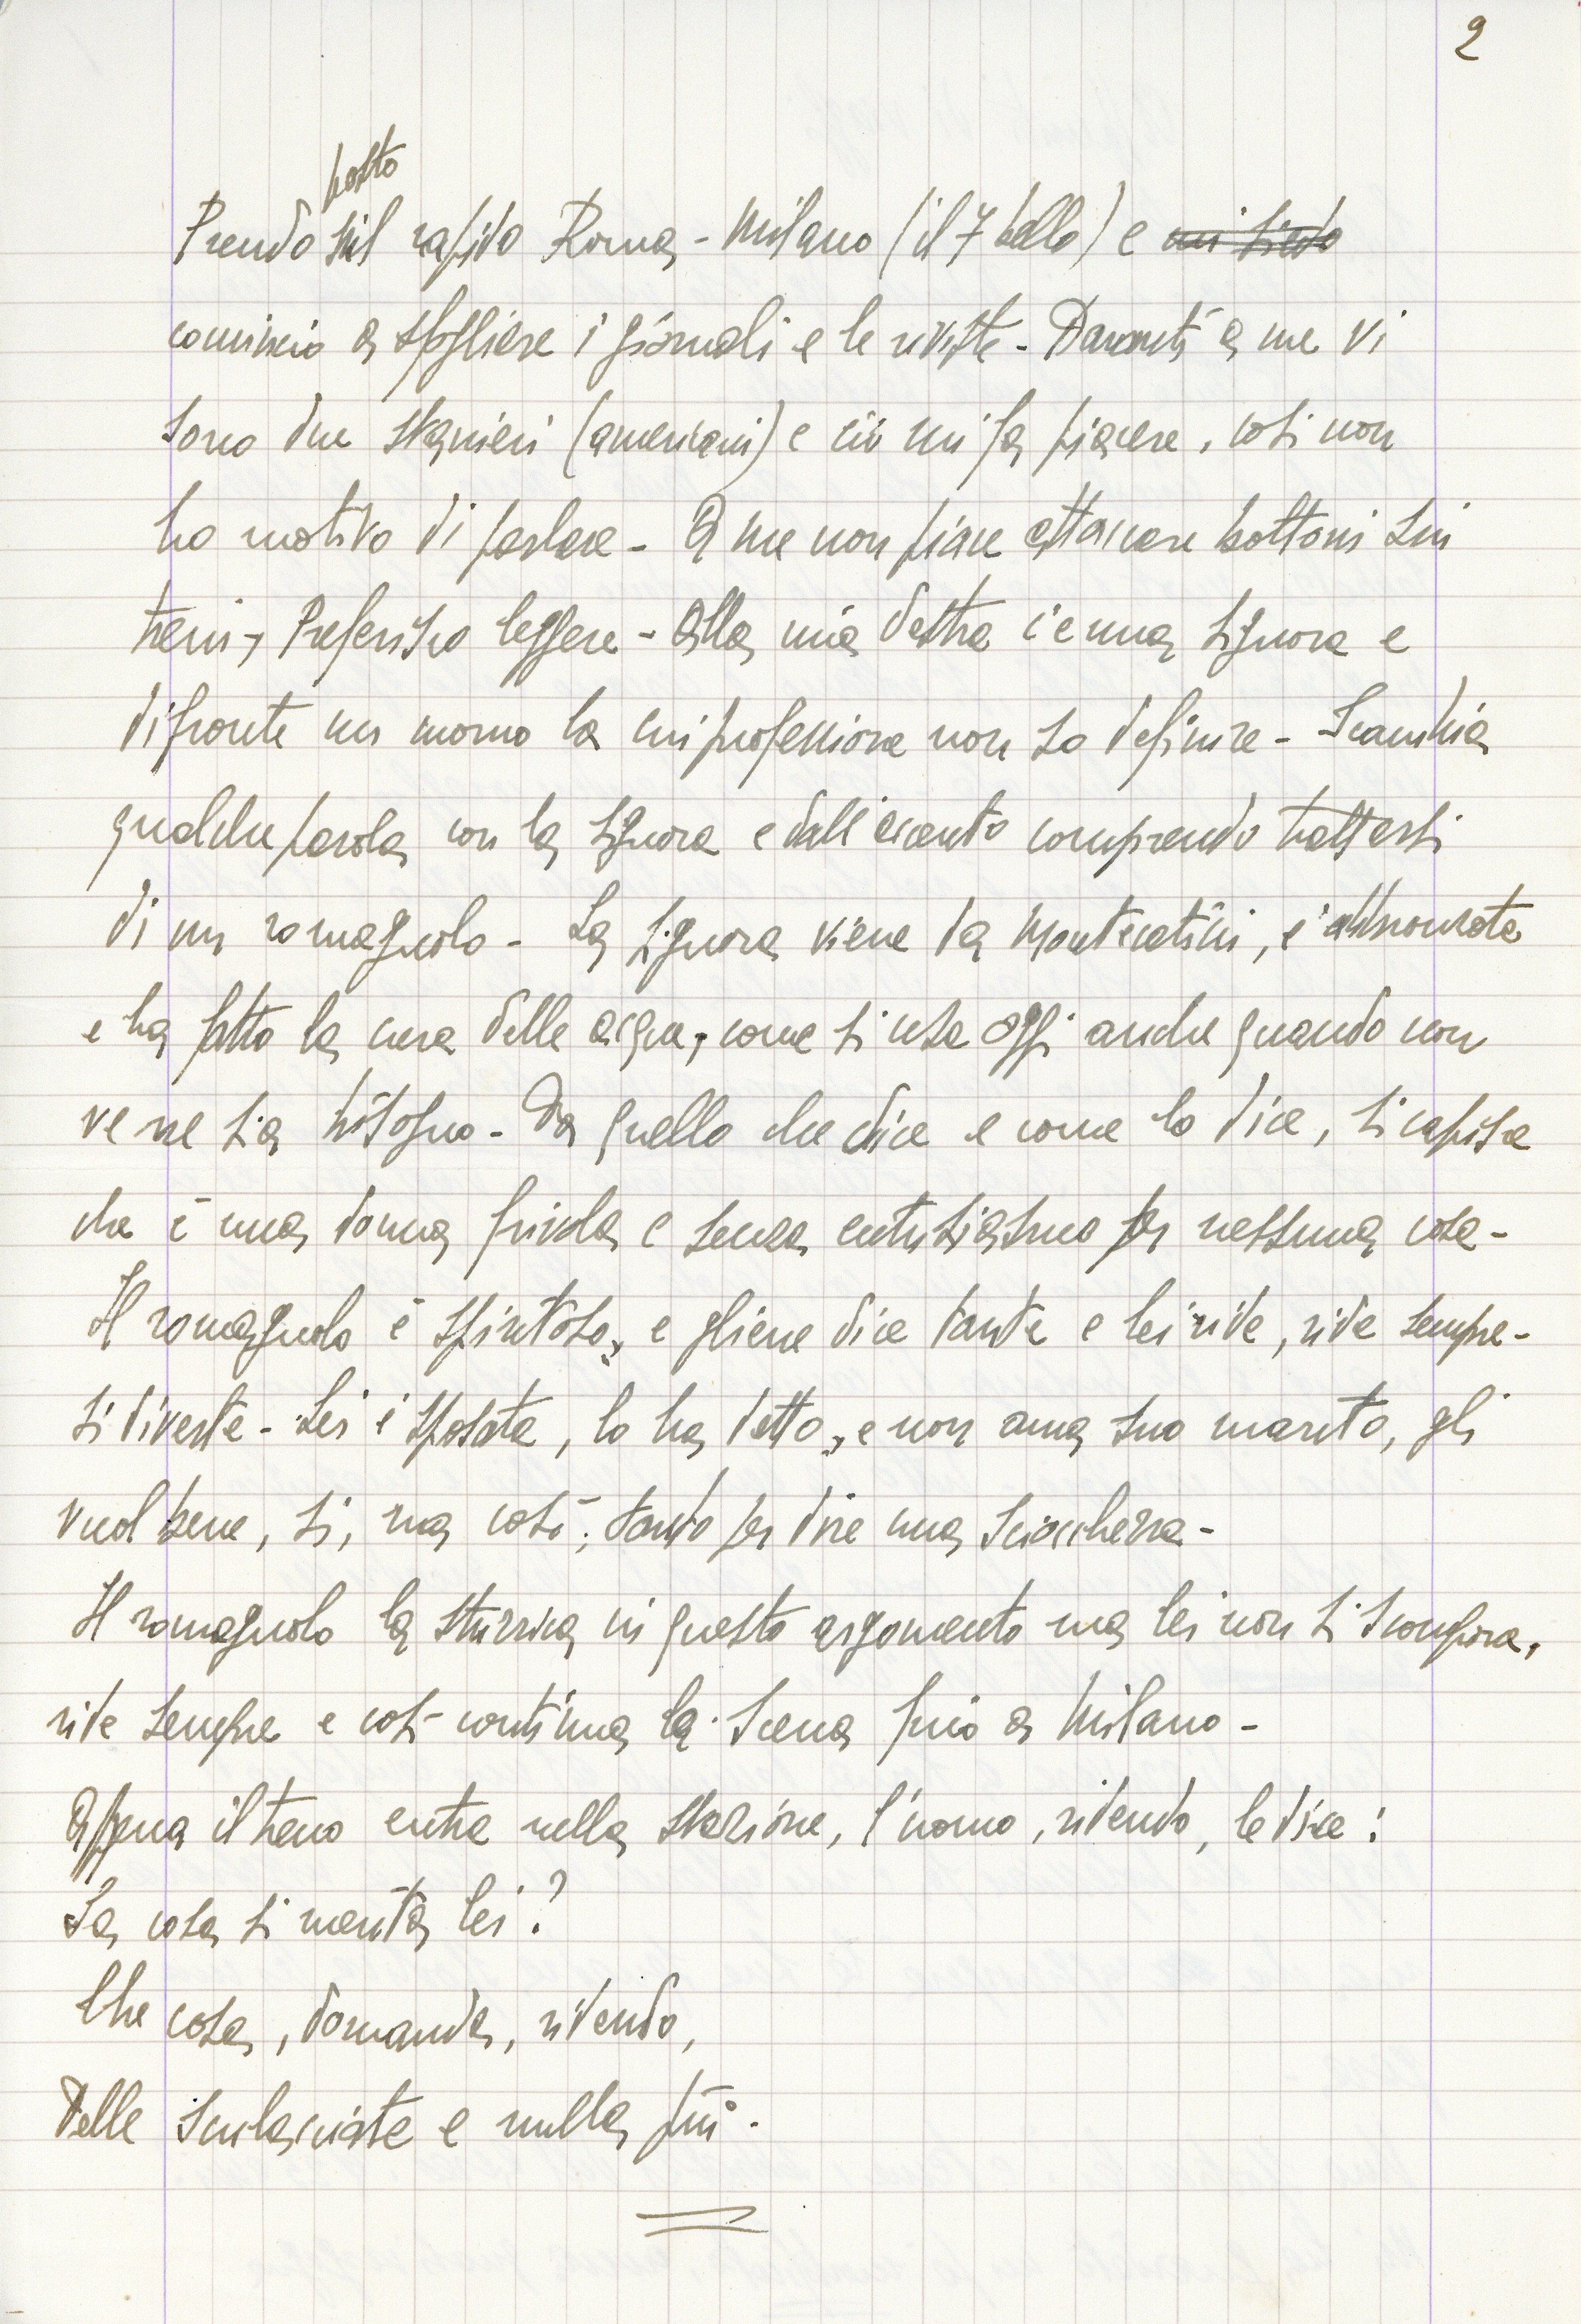 2
posto
Prendo sul rapido Roma - Milano (il 7 bello) e mi siedo
comincio a sfogliare i giornali e le riviste - Davanti a me vi
sono due stranieri (americani) e ciò mi fa piacere, così non
ho motivo di parlare - A me non piace attaccare bottoni sui
treni, Preferisco leggere - Alla mia destra c'e una signora e
difronte un uomo la cui professione non so definire - Scambia
qualche parola con la signora e dall'accento comprendo trattarsi
di un romagnolo - La signora viene da Montecatini, è abbronzata
e ha fatto la cura delle acque, come si usa oggi anche quando non
ve ne sia bisogno - Da quello che dice e come lo dice, si capisce
che è una donna frivola e senza entusiasmo per nessuna cosa -
Il romagnolo è spiritoso, e gliene dice tante e lei ride, ride sempre -
si diverte - Lei è sposata, lo ha detto, e non ama suo marito, gli
vuol bene, si, ma così, tanto per dire una sciocchezza -
Il romagnolo la stuzzica in questo argomento ma lei non si scompone,
ride sempre e così continua la scena fino a Milano -
Appena il treno entra nella stazione, l'uomo, ridendo, le dice:
Sa cosa si merita lei?
Che cosa, domanda, ridendo,
Delle sculacciate e nulla più -